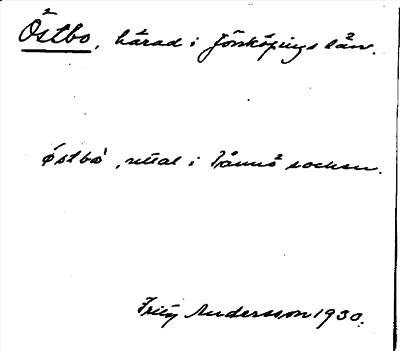 Östbo, härad i Jönköpings län.
östbo, uttal i Lånnå socken.
Fritz Andersson 1930.